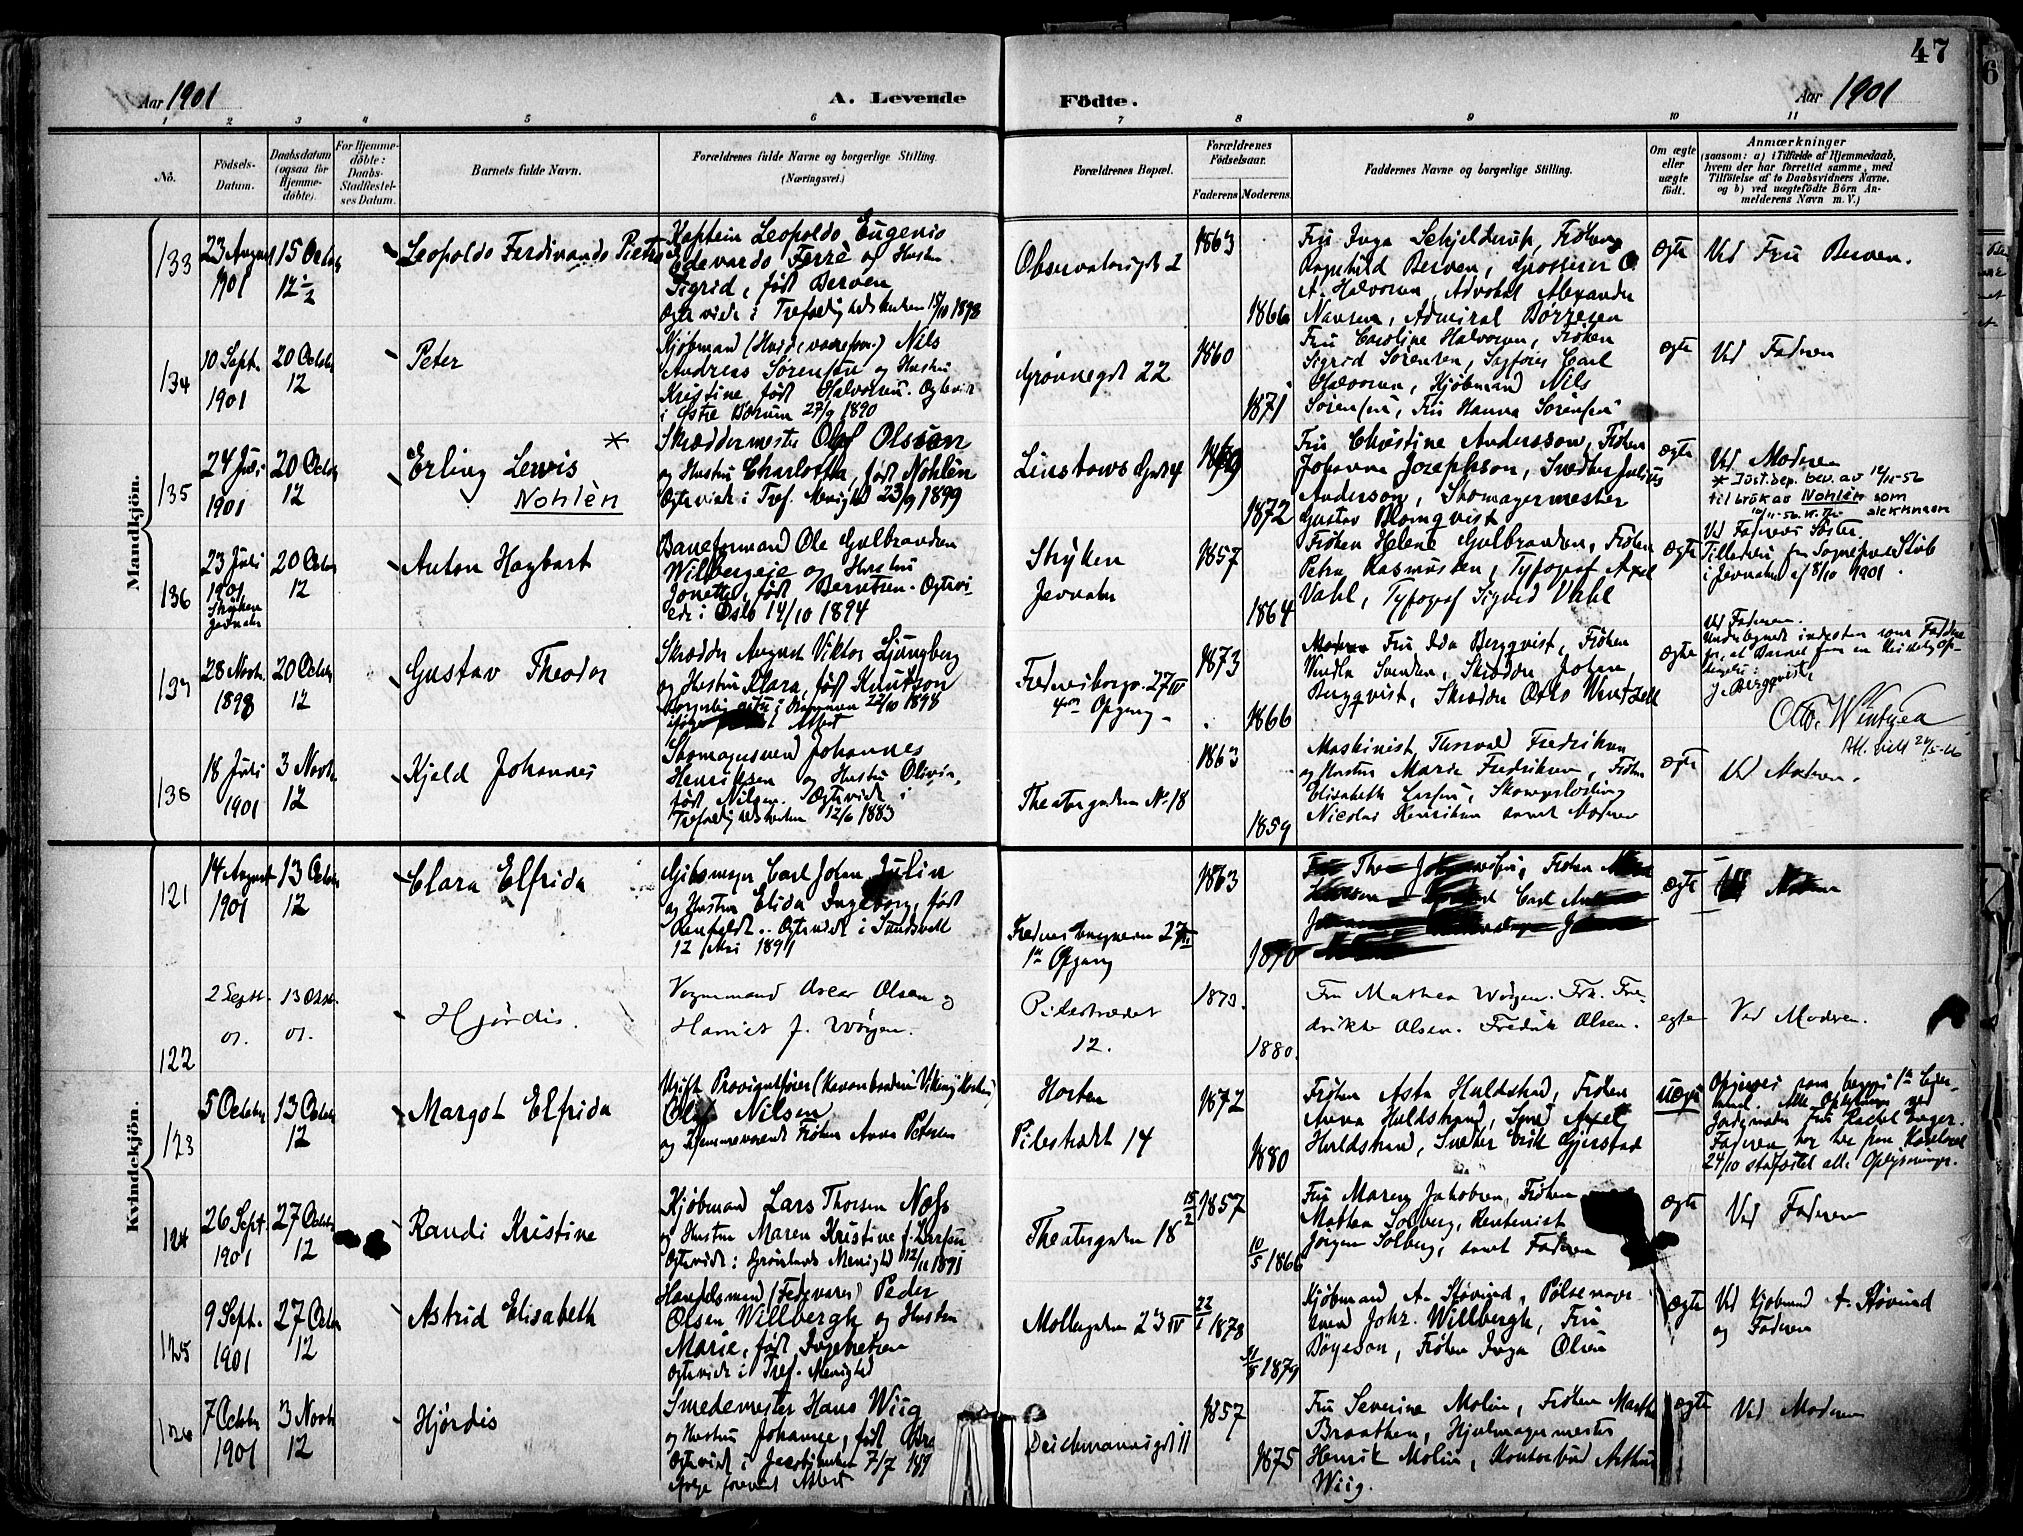 47
Aar 1901
A. Levende
Födte.
Aar 1901
1 2 3 4 5 6 7 8 9 10 11
No.
Födsels-
Datum.
Daabsdatum
(ogsaa for
Hjemme-
döbte).
For Hjemme-
döbte:
Daabs-
Stadfæstel-
ses Datum.
Barnets fulde Navn.
Forældrenes fulde Navne og borgerlige Stilling.
(Næringsvei.)
Forældrenes Bopæl.
Forældrenes
Födselsaar.
Faderens Moderens.
Faddernes Navne og borgerlige Stilling.
Om ægte
eller
uægte
födt.
Anmærkninger
(saasom: a) i Tilfælde af Hjemmedaab,
hvem der har forrettet samme, med
Tilföielse af to Daabsvidners Navne,
og b) ved uægtefödte Börn An-
melderens Navn m. V.)
Mandkjön.
133
23 August
1901
15 Octob
12 1/2
Leopoldo Ferdinando Pietro
Kaptein Leopoldo Eugenio
Edevardo Ferrè og Hustru
Sigrid, født Berven
Ogteviede i Trefoldighedskirken 15/10 1898
Observatoriegt 2
1863
1866
Fru Inga Schjelderup, Frøken
Ragnhild Berven, Grosserer O
A. Halvorsen, Advokat Alexander
Nansen, Admiral Børresen
ægte
Ved Fru Berven.
134
10 Sept.
1901
20 Octobr
12
Peter
Kjøbmand (Hvidevareforr.) Nils
Andreas Sørensen og Hustru
Kristine, født Halvorsen. Ogteviede
i Østre Bærum 27/9 1890
Grønnegt 22
1860
1871
Fru Caroline Halvorsen, Frøken
Sigrid Sørensen, Sagfører Carl
Halvorsen, Kjøbmand Nils
Sørensen, Fru Hanna Sørensen
ægte
Ved Faderen
135
24 Juli
1901
20 Octob
12
Erling Lewis *
Nohlèn
Skræddermester Olof Olsson
og Hustru Charlotta, født Nohlèn
Ogteviede i Tref. Menighed 23/9 1899
Linstows Gade 4
1872
Fru Christine Andersson, Frøken
Johanna Josephsson, Snedker Julius
Anderson, Skomagermester
Gustav Blomqvist
ægte
Ved Moderen
* Just.dep. bev. av 10/11-56
til bruk av Nohlèn som
slektsnavn
136
23 Juli
1901
Stryken
Jevnaker
20 Octobr
12
Anton Hagbart
Baneformand Ole Gulbrandsen
Wilbergeie og Hustru
Jonette, født Berntsen. Ogtevi-
ede i Oslo 14/10 1894
Stryken
Jevnaker
1857
1864
Frøken Helene Gulbrandsen, Frøken
Petra Rasmussen, Typograf Axel
Vahl, Typograf Sigurd Vahl
ægte
Ved Faderens Søster
Tilladelse fra Sognepræst Stub
i Jevnaker af 8/10 1901.
137
28 Novb.
1898
20 Octobr
12
Gustav Theodor
Skrædder August Viktor Ljungberg
og Hustru Klara, født Knutson
Borgerlig gifte i 22/10 1898
Attest
Fredensborgv. 27 IV
Opgang
1873
1866
Fru Ida Bergqvist, Frøken
Svendsen, Skrædder Johan
Bergqvist, Skrædder Otto Wentzell
ægte
Ved Faderen.
Undertegnede indestaar som Faddere
for, at Barnet faar en kristelig Op-
dragelse:
J. Bergqvist
138
18 Juli
1901
3 Novbr
12
Kjeld Johannes
Skomagersvend Johannes
Henriksen og Hustru Olivia,
født Nilsen. Ogteviede i
Trefoldighedskirken 12/6 1883
Theatergaden No. 18
1863
1859
Maskinist Thorvald Fredriksen
og Hustru Marie Fredriksen, Frøken
Elisabeth Larsen, Skomagerlærling
Nicolai Henriksen samt Moderen
ægte
Ved Moderen.
Kvindekjön.
121
14 August
1901
13 Octobr
12
Clara Elfrida
Gjibsmager Carl Johan Julin
og Hustru Elida Ingeborg, født
Ogteviede i Sundsvall
12 1891
Fredensborgveien 27 III
1ste Opgang
1863
1870
ægte
122
2 Septbr.
01.
13 Oktbr.
01.
Hjørdis.
Vognmand Oscar Olsen og
Harriet f. Wøyen.
Pilestrædet
12.
1873.
1880.
Fru Mathea Wøyen. Frk. Fre-
drikke Olsen. Fredrik Olsen.
ægte
Ved Moderen.
123
5 Octobr
13 Octobr
12
Margot Elfrida
Ugift Proviantfører (Kanonbaaden Viking Horten)
Olaf Nilsen
og Hjemmeværende Frøken Anna Petersen
Horten
Pilestrædt 14
1872
1880
Frøken Asta Huldstrand, Frøken
Anna Huldstrand, Smed Axel
Huldstrand, Snedker Erik Gjerstad
uægte
Opgives som begges 1ste Leier-
maal. Alle Oplysninger ved
Jordemoder Fru Rachel
Faderen har
24/10 stadfæstet alle Oplysninger.
124
26 Sept.
1901
27 Octobr
12
Randi Kristine
Kjøbmand Lars Thorsen Næss
og Hustru Maren Kristine f. Larsen
Ogteviede i Grønlands Menighed 12/11 1891
Theatergaden 18
15/2 1857
10/5 1866
Fru Maren Jakobsen, Frøken
Mathea Solberg, Rentenist
Jørgen Solberg, samt Faderen
ægte
Ved Faderen
125
9 Sept.
1901
27 Octobr
12
Astrid Elisabeth
Handelsmand (Fedevarer) Peder
Olsen Willbergh og Hustru
Marie, født Ingebretsen
Ogteviede i Tref. Menighed
Møllergaden 23 IV
22/1 1878
1879
Kjøbmand A. Støvind, Pølsemager-
svend Johs. Willbergh, Fru
Bøyeson, Frøken Inga Olsen
ægte
Ved Kjøbmand A. Støvind
og Faderen
126
7 Octobr
1901
3 Novbr
12
Hjørdis
Smedemester Hans Wiig
og Hustru Johanne, født Bra
Ogteviede i Jacobs kirken 7/7 189
ifølge forevist Attest
Deichmannsgt 11
1857
1875
Fru Severine Molin, Frøken Martha
Braathen, Hjulmagermester
Henrik Molin, Kontorbud Arthur
Wiig.
ægte
Ved Moderen